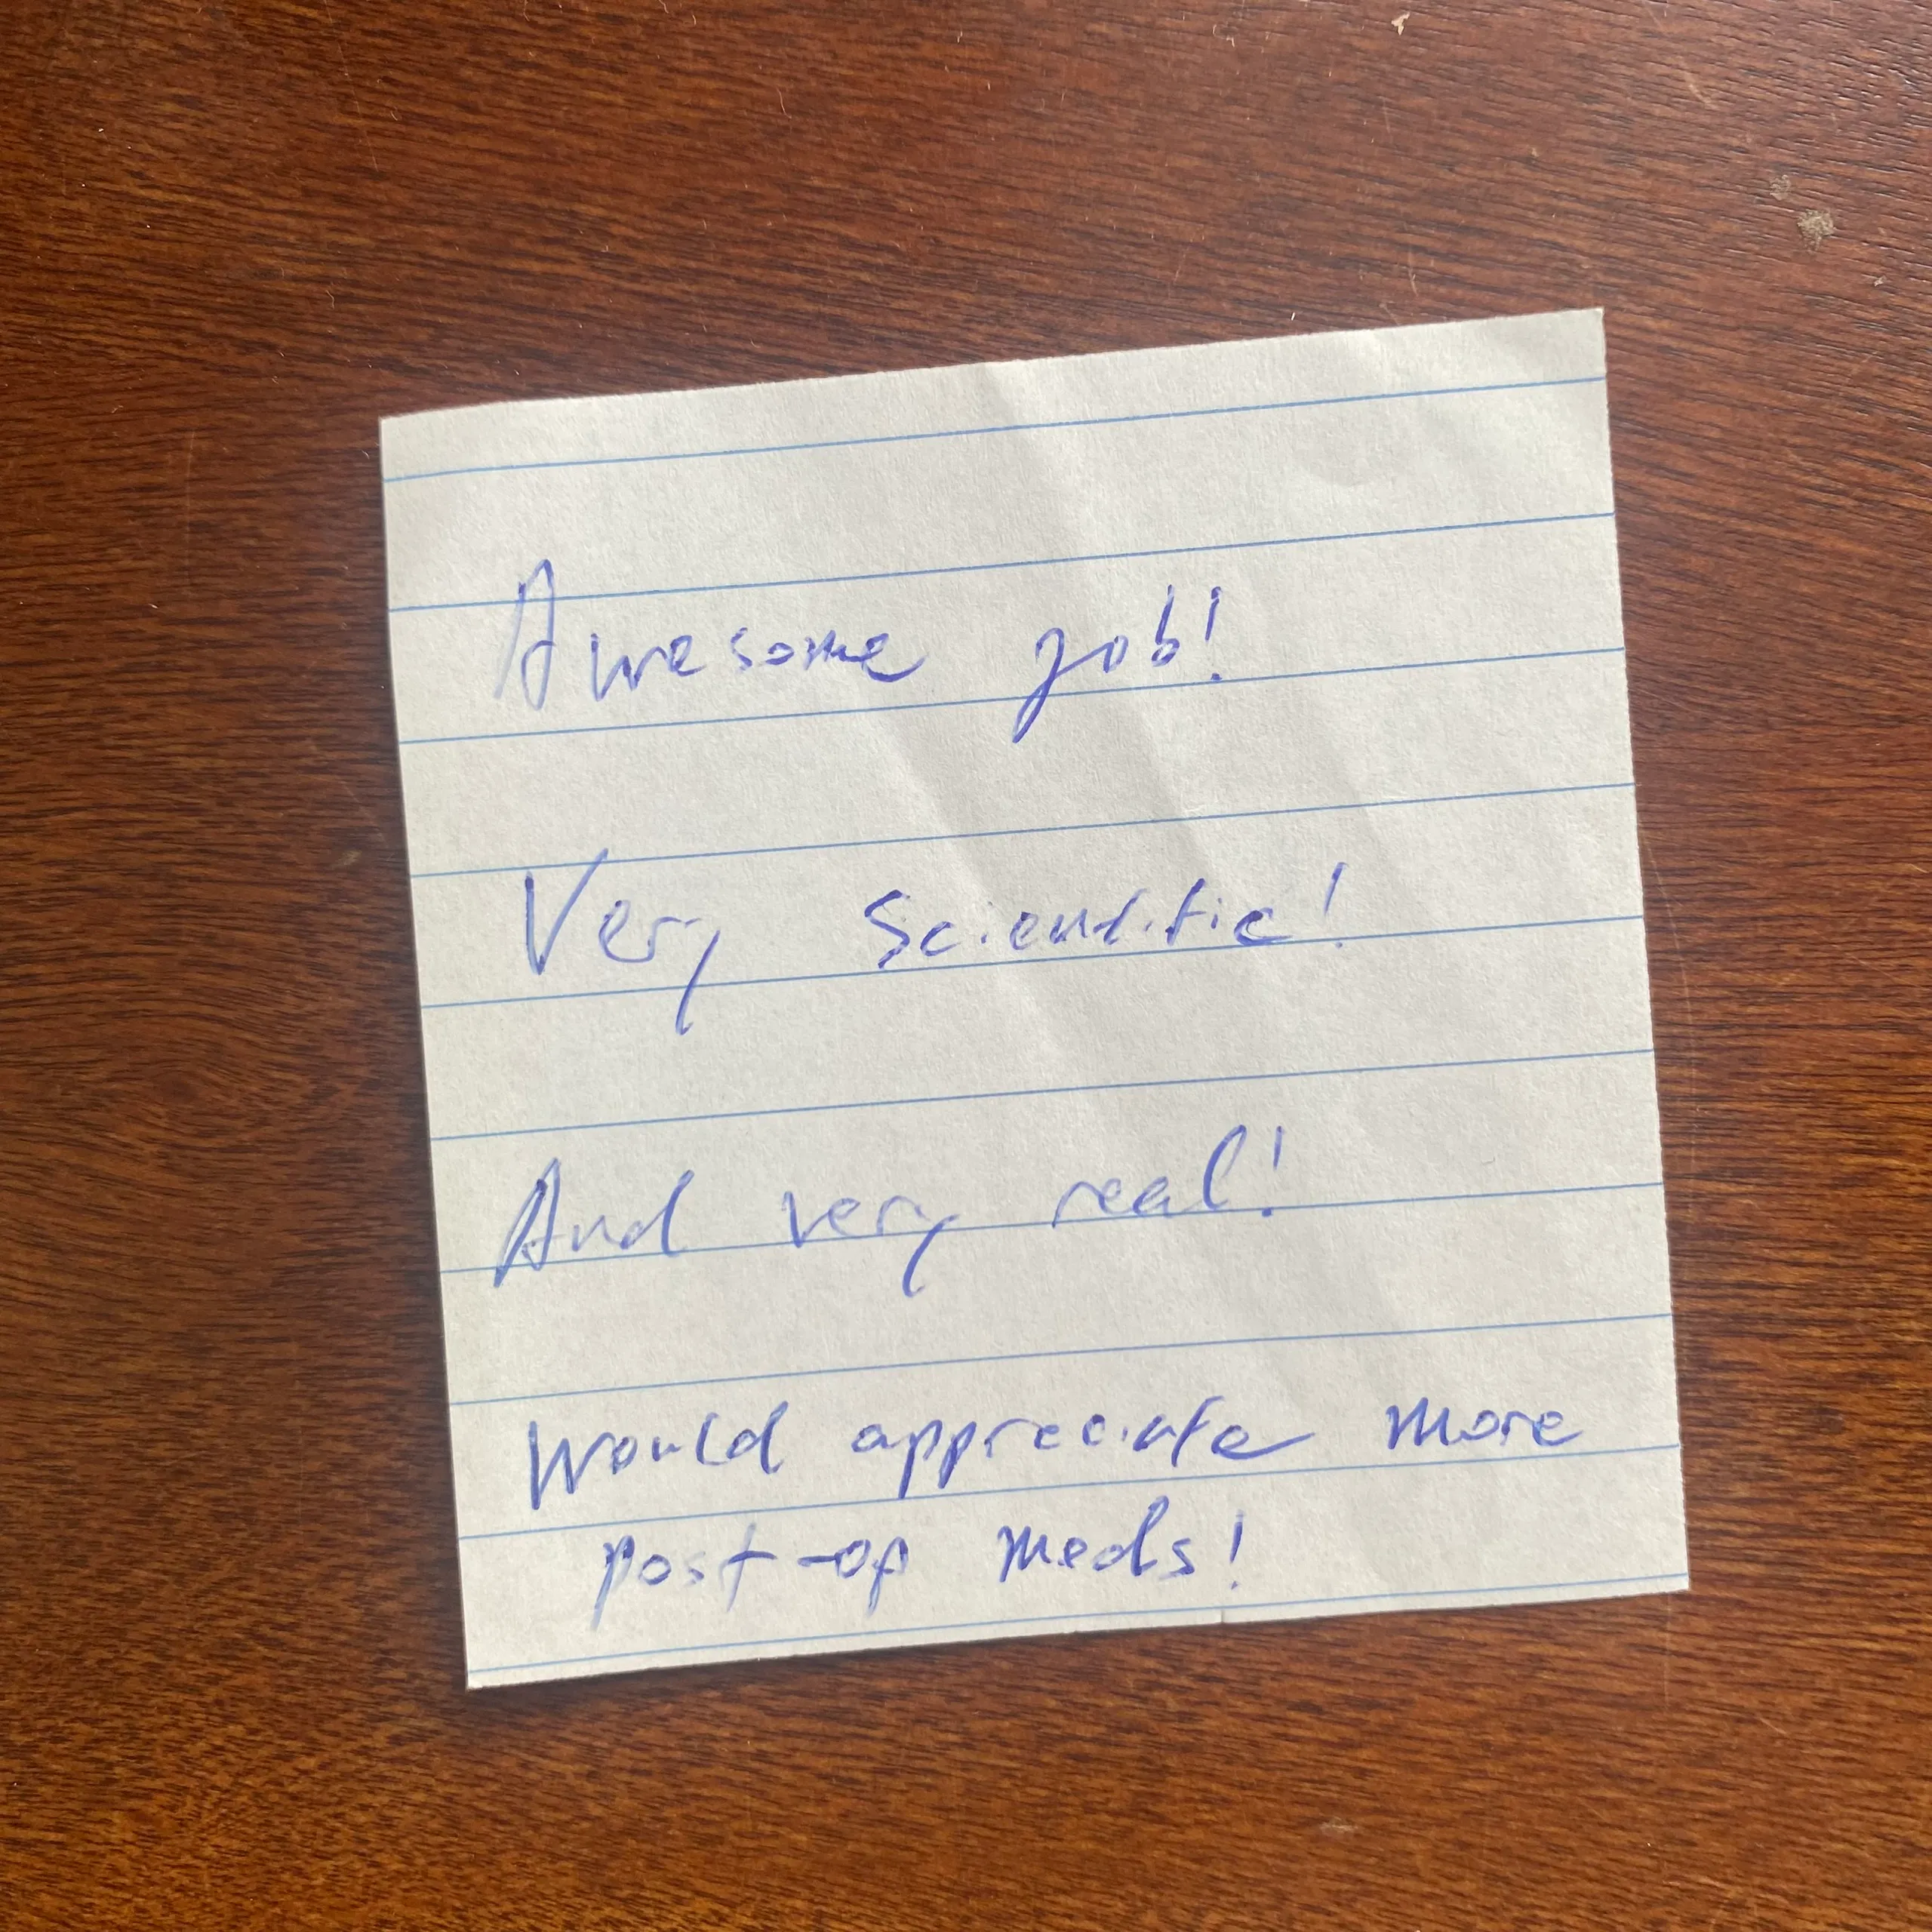 Awesome job!
Very Scientific!
And very real!
Would appreciate more
post-op meds!